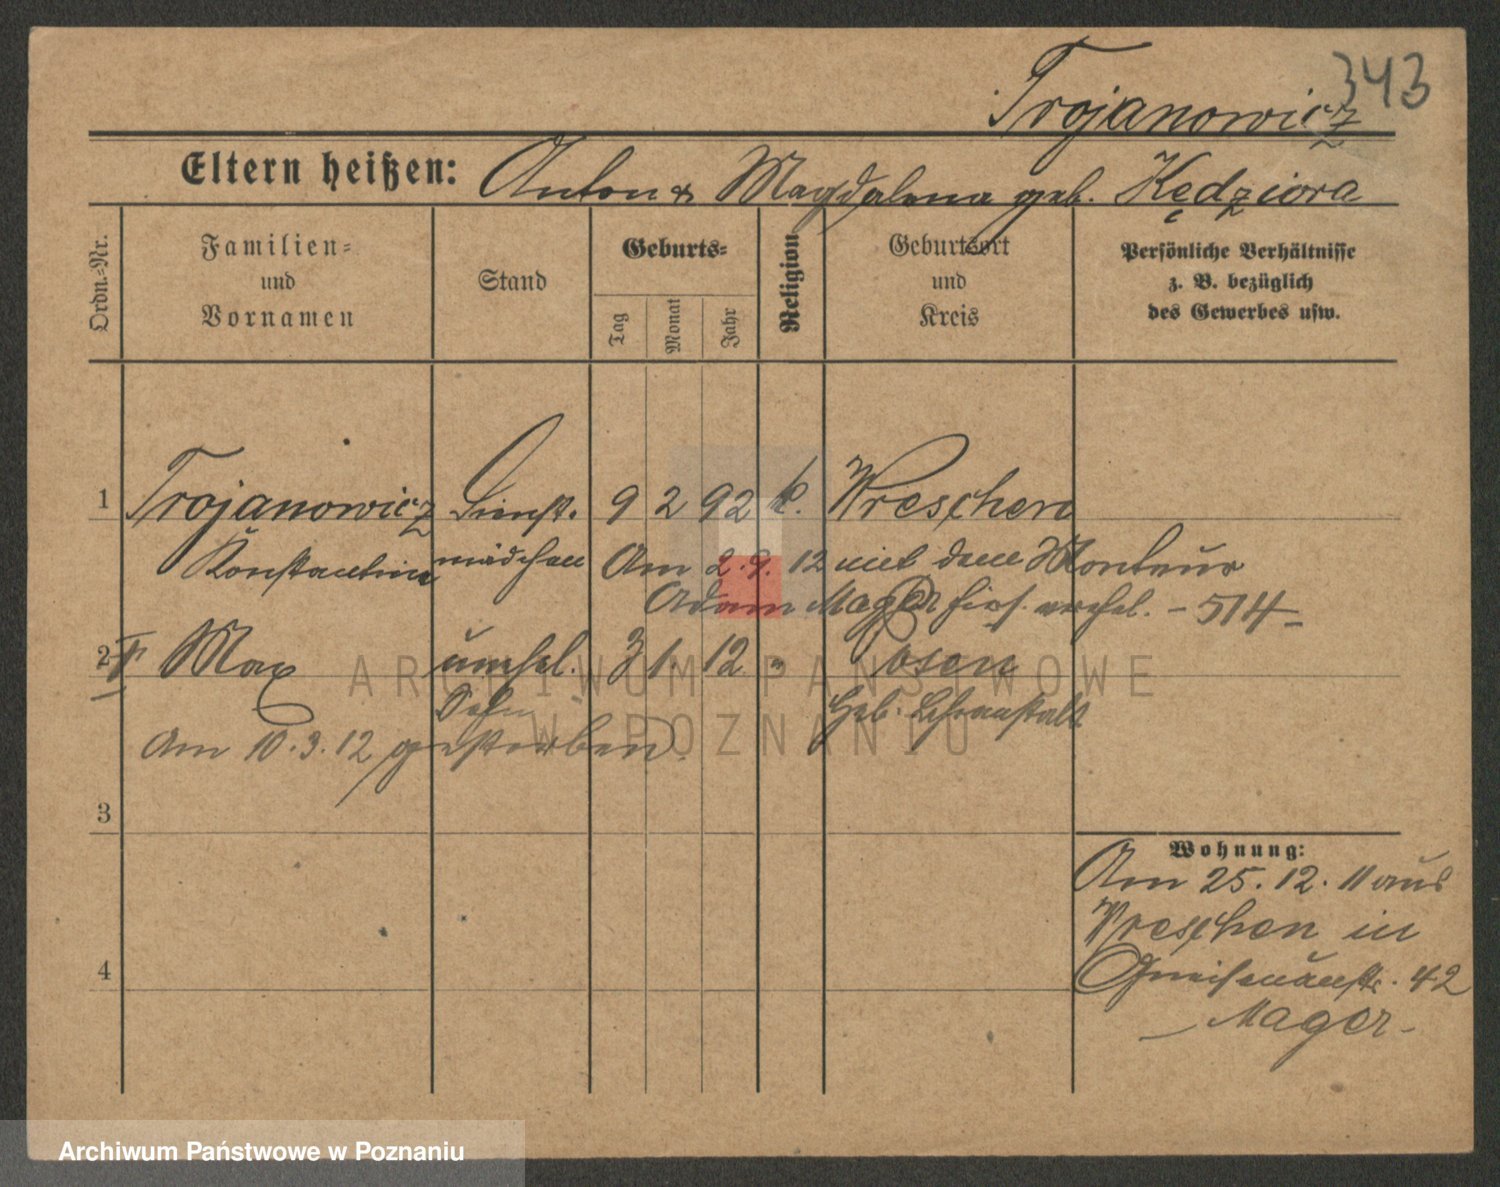 343
Trojanowicz
Eltern heißen: Anton & Magdalena geb. Kędziora
Ordn.-Nr.
Familien- und Vornamen
Stand
Geburts-
Tag
Monat
Jahr
Religion
Geburtsort und Kreis
Persönliche Verhältnisse
z. B. bezüglich
des Gewerbes usw.
1 Trojanowicz Dienst- 9 2 92 k. Wreschen
Konstantina mädchen Am 2.9.12 mit dem Monteur
Adam Mager hies. verehel. - 514 -
2 Max unehel. 3 1. 12 " Posen
Sohn Heb. Lehranstalt
Am 10.3.12 gestorben.
3
4
Wohnung:
Am 25.12.11 aus
Wreschen in
Gneisenaustr. 42
Mager
ARCHIWUM PAŃSTWOWE
W POZNANIU
Archiwum Państwowe w Poznaniu